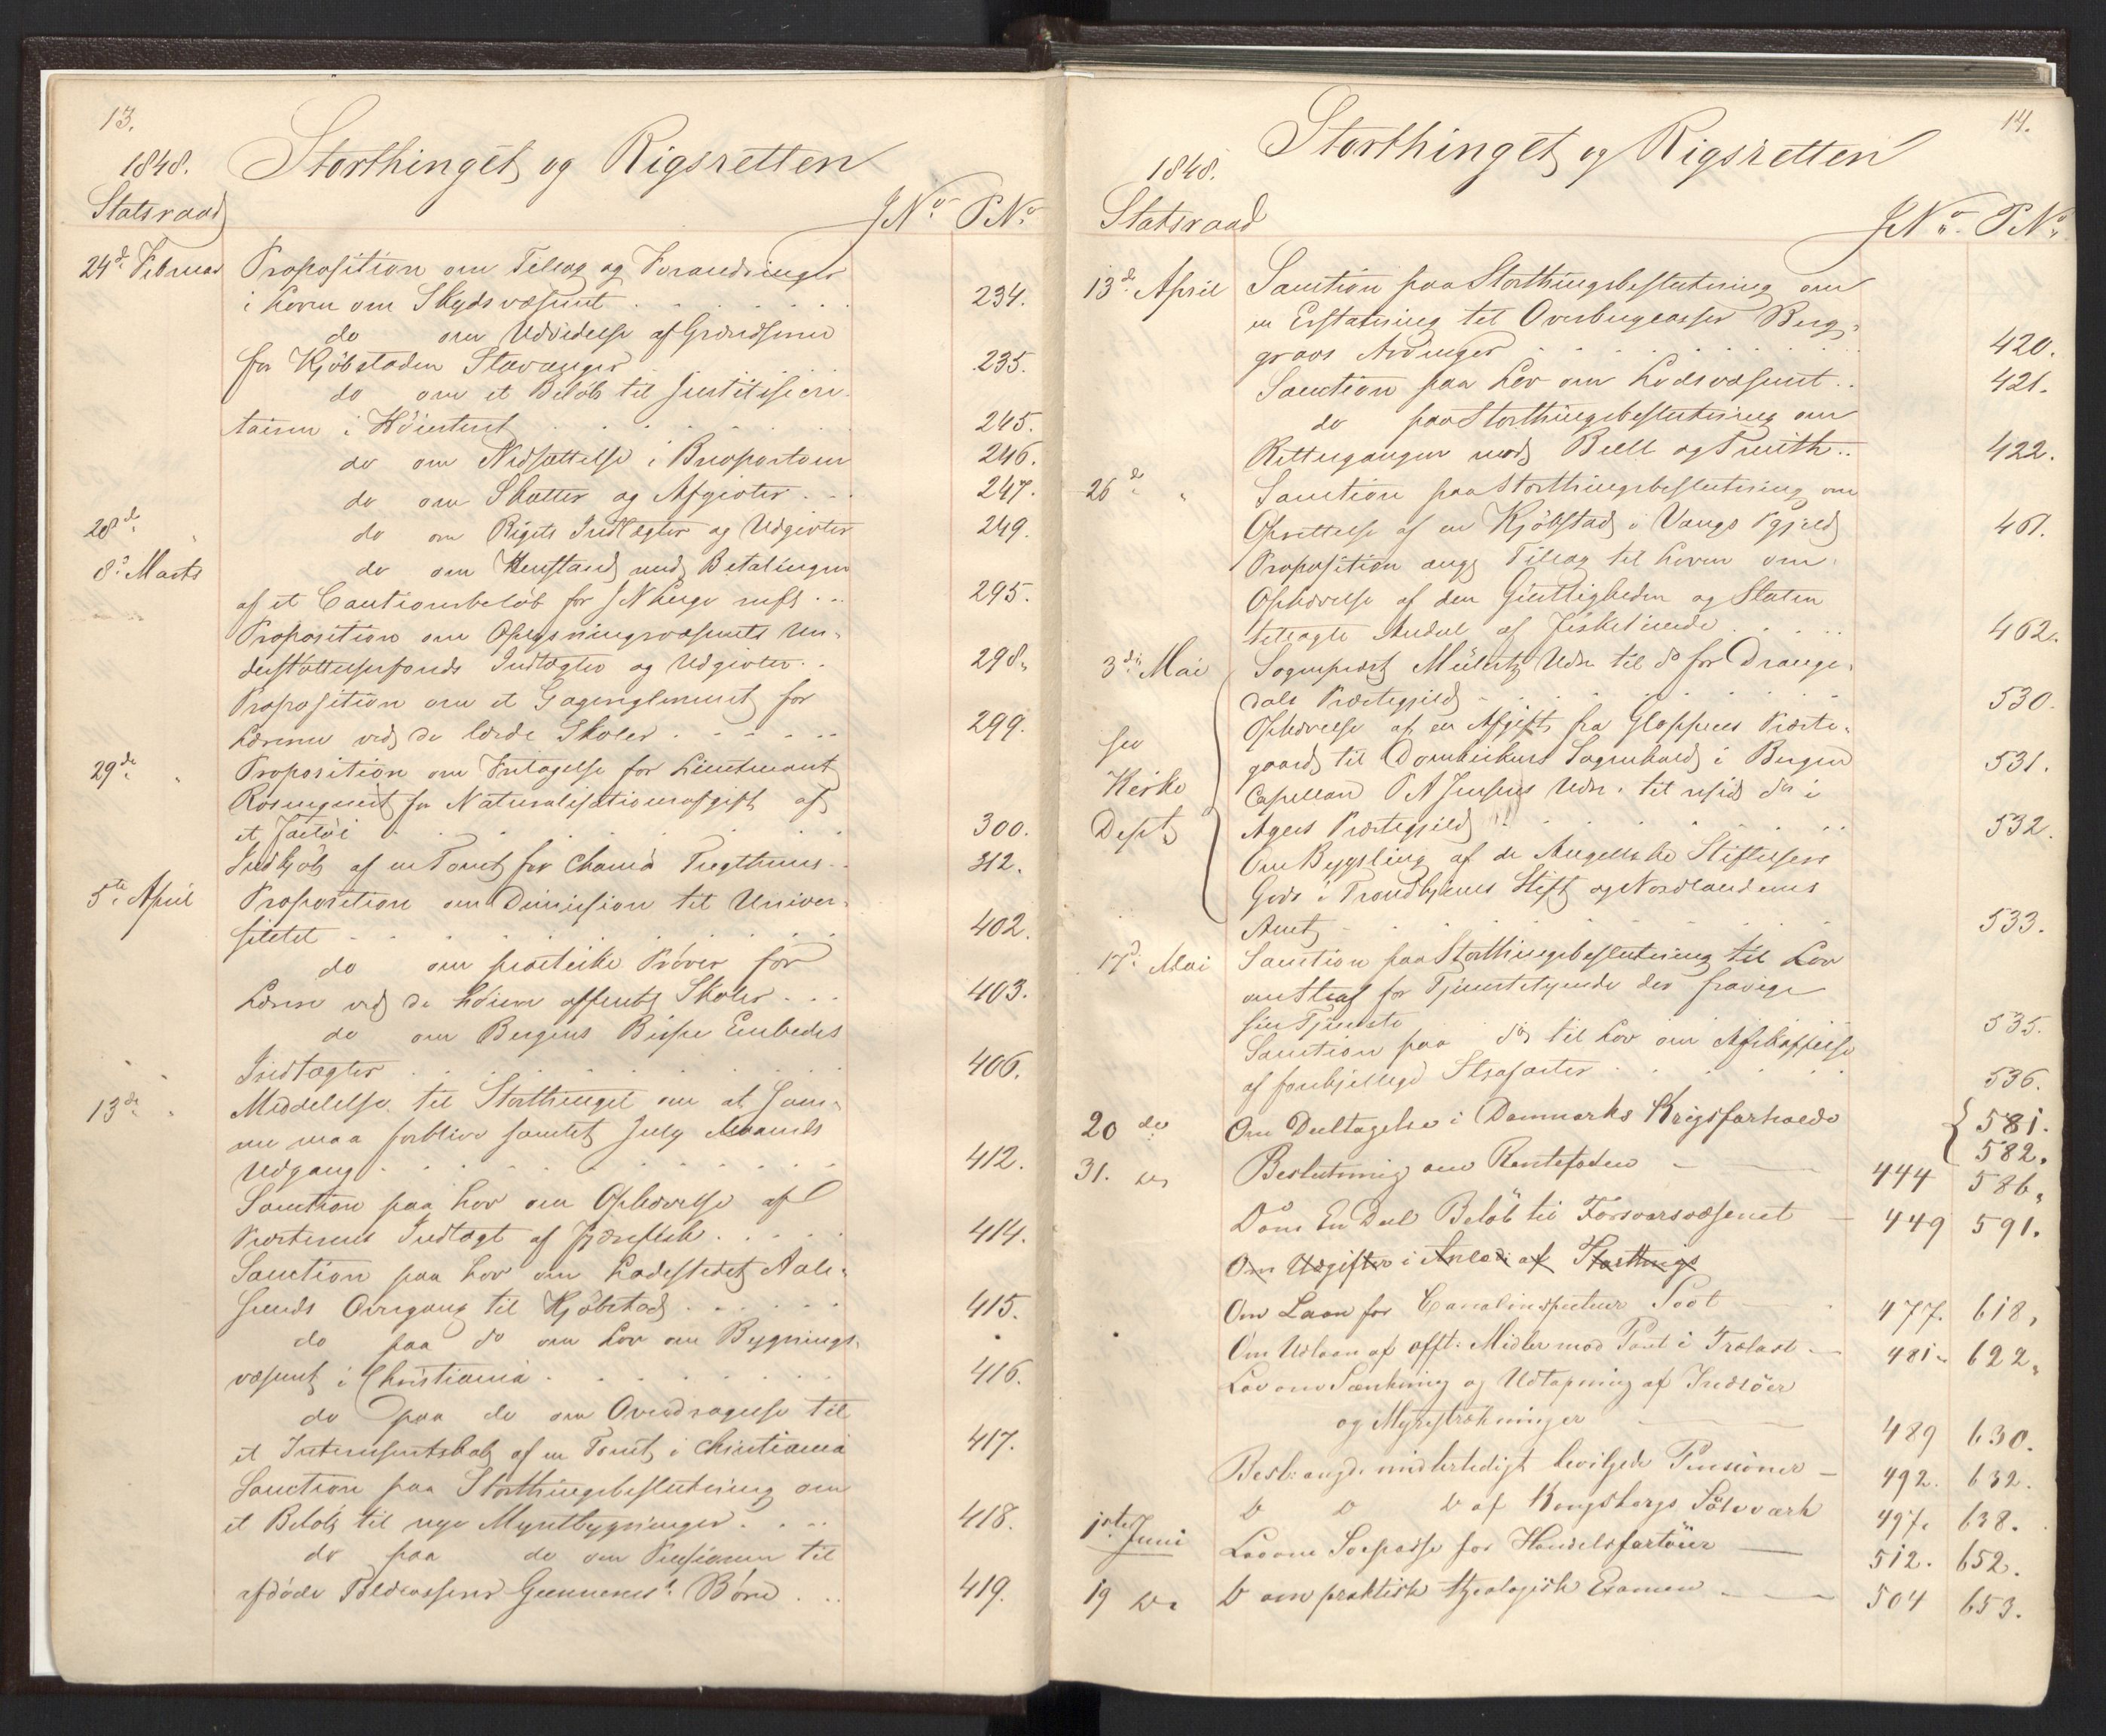 13.
1848. Storthinget og Rigsretten
Statsraad JNo. PNo.
24de Februar Proposition om Tillæg og Forandringer
i Loven om Skydsvæsenet . . . 234.
do om Udvidelse af Grændserne
for Kjöbstaden Stavanger 235.
do om et Belöb til
i 245.
do om Nedsættelse i Brevportoen 246.
do om Skatter og Afgivter . . 247.
28de " do om Rigets Indtægter og Udgivter 249.
8de Marts do om Henstand med Betalingen
af et Cautionsbelöb for . . 295.
Proposition om Oplysningsvæsenets Un-
derstöttelsesfonds Indtægter og Udgivter . . 298.
Proposition om et Gagereglement for
Lærerne ved de lærde Skoler . . . . . 299.
29de " Proposition om Fritagelse for Lieutenant
Rosenqvist for Naturalisationsafgift af
et Fartöi . . . . . 300.
Indkjöb af en Tomt for Chania Tugthuus . . 312.
5te April Proposition om Dimission til Univer-
sitetet . . . . . . 402.
do om practiske Pröver for
Lærere ved de höiere offentl Skoler . . . 403.
do om Bergens Bispe Embedes
Indtægter . . . . . . 406.
13de " Meddelelse til Storthinget om at Sam-
me maa forblive samlet July Maaneds
Udgang . . . . . . 412.
Sanction paa Lov om Ophævelse af
Præsternes Indtægt af . . . . 414.
Sanction paa Lov om Ladestedet Aale-
sunds Overgang til Kjöbstad . . . . . 415.
do paa do om Lov om Bygnings-
væsenet i Christiania . . . . . 416.
do paa do om Overdragelse til
et Interessentskab af en Tomt i Christiania 417.
Sanction paa Storthingsbeslutning om
et Belöb til nye Myntbygninger . . . 418.
do paa do om Pension til
afdöde Toldcasserer Gunnerus's Börn . . 419.
14.
1848. Storthinget og Rigsretten
Statsraad JNo. PNo.
13de April Sanction paa Storthingsbeslutning om
en Erstatning til Overbergcasserer Berg-
gravs Arvinger . . . . . 420.
Sanction paa Lov om Lodsvæsenet . . 421.
do paa Storthingsbeslutning om
Rettergangen mod Bell og Smith . . 422.
26de " Sanction paa Storthingsbeslutning om
Oprettelse af en Kjöbstad i Vangs Pgjeld 461.
Proposition ang Tillæg til Loven om
Ophævelse af den Geistligheden og Staten
tillagte Andel af Fisketiende . . . . 462.
3die Mai Sognepræst Mülertz Udn. til do for Drange-
dals Præstegjeld . . . . . 530.
Ophævelse af en Afgift fra Gloppens Præste-
see gaard til Domkirkens Sognekald i Bergen 531.
Kirke Capellan P A Jensens Udn. til resid do i
Dept Agers Præstegjeld . . . . . 532.
Om Bygsling af de Angellske Stiftelsers
Gods i Trondhjems Stift og Nordlandenes
Amt . . . . . . 533.
17de Mai Sanction paa Storthingsbeslutning til Lov
om Straf for Tjenestetyende der fravige
sin Tjeneste 535.
Sanction paa do til Lov om Afskaffelse
af forskjellige Strafarter . . . . . 536.
20 de Om Deeltagelse i Danmarks Krigsforholde { 581.
582.
31. do Beslutning om Rentefoden 444 586.
Do om En Deel Belöb til Forsvarsvæsenet 449 591.
Om Udgifter i Anled. af Storthings
Om Laan for Canalinspecteur Soot 477. 618.
Om Udlaan af offtl. Midler mod Pant i Trælast 481. 622.
Lov om Sænkning og Udtapning af Indsöer
og Myrstrækninger 489 630.
Besl: angd. midlertidigt bevilgede Pensioner 492. 632.
D D D af Kongsbergs Sölvværk 497. 638.
1ste Juni Lov om Söepasse for Handelsfartöier 512. 652.
19 de D om praktisk theologisk Examen 504 653.